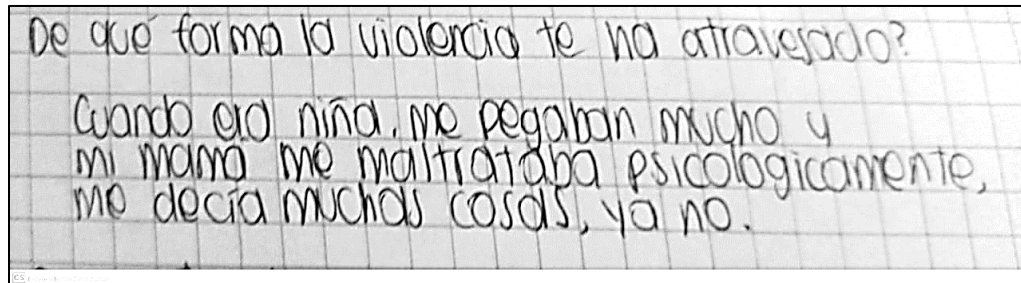 De qué forma la violencia te ha atravesado?
Cuando era niña, me pegaban mucho y
mi mamá me maltrataba psicologicamente,
me decía muchas cosas, ya no.
CS